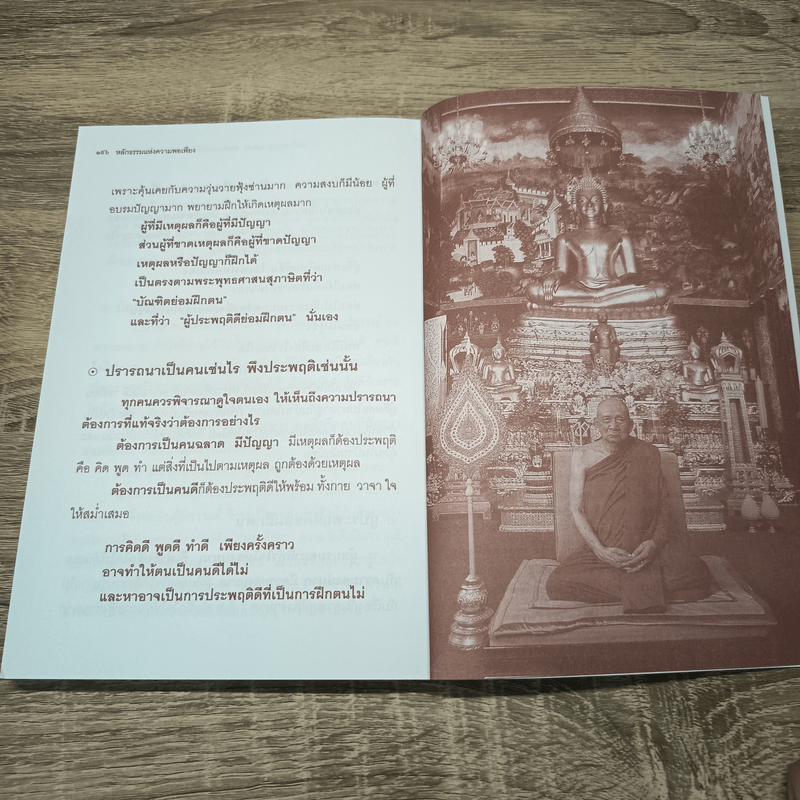 ๑๕๖ หลักธรรมแห่งความพอเพียง
เพราะคุ้นเคยกับความวุ่นวายฟุ้งซ่านมาก ความสงบก็มีน้อย ผู้ที่
อบรมปัญญามาก พยายามฝึกให้เกิดเหตุผลมาก
ผู้ที่มีเหตุผลก็คือผู้ที่มีปัญญา
ส่วนผู้ที่ขาดเหตุผลก็คือผู้ที่ขาดปัญญา
เหตุผลหรือปัญญาก็ฝึกได้
เป็นตรงตามพระพุทธศาสนสุภาษิตที่ว่า
“บัณฑิตย่อมฝึกตน”
และที่ว่า “ผู้ประพฤติดีย่อมฝึกตน” นั่นเอง
⊙ ปรารถนาเป็นคนเช่นไร พึงประพฤติเช่นนั้น
ทุกคนควรพิจารณาดูใจตนเอง ให้เห็นถึงความปรารถนา
ต้องการที่แท้จริงว่าต้องการอย่างไร
ต้องการเป็นคนฉลาด มีปัญญา มีเหตุผลก็ต้องประพฤติ
คือ คิด พูด ทำ แต่สิ่งที่เป็นไปตามเหตุผล ถูกต้องด้วยเหตุผล
ต้องการเป็นคนดีก็ต้องประพฤติดีให้พร้อม ทั้งกาย วาจา ใจ
ให้สม่ำเสมอ
การคิดดี พูดดี ทำดี เพียงครั้งคราว
อาจทำให้ตนเป็นคนดีได้ไม่
และหาอาจเป็นการประพฤติดีที่เป็นการฝึกตนไม่